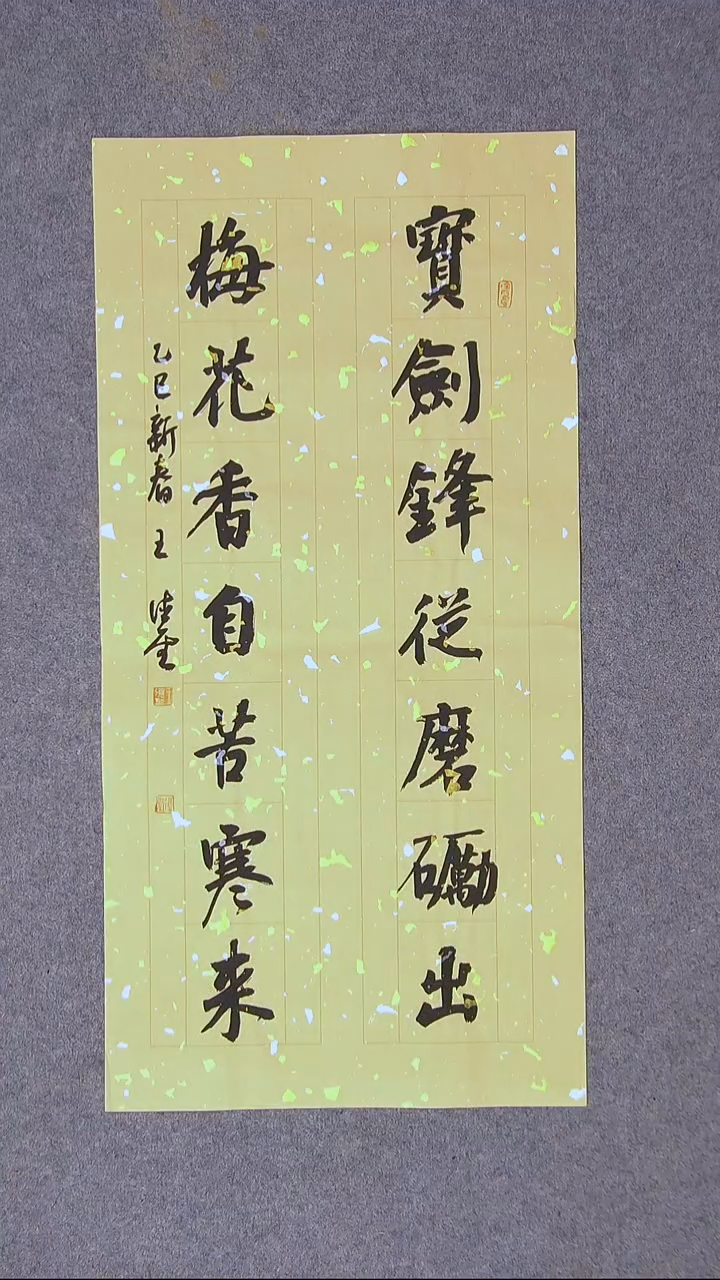 寶劍鋒從磨礪出
梅花香自苦寒来
乙巳新春王